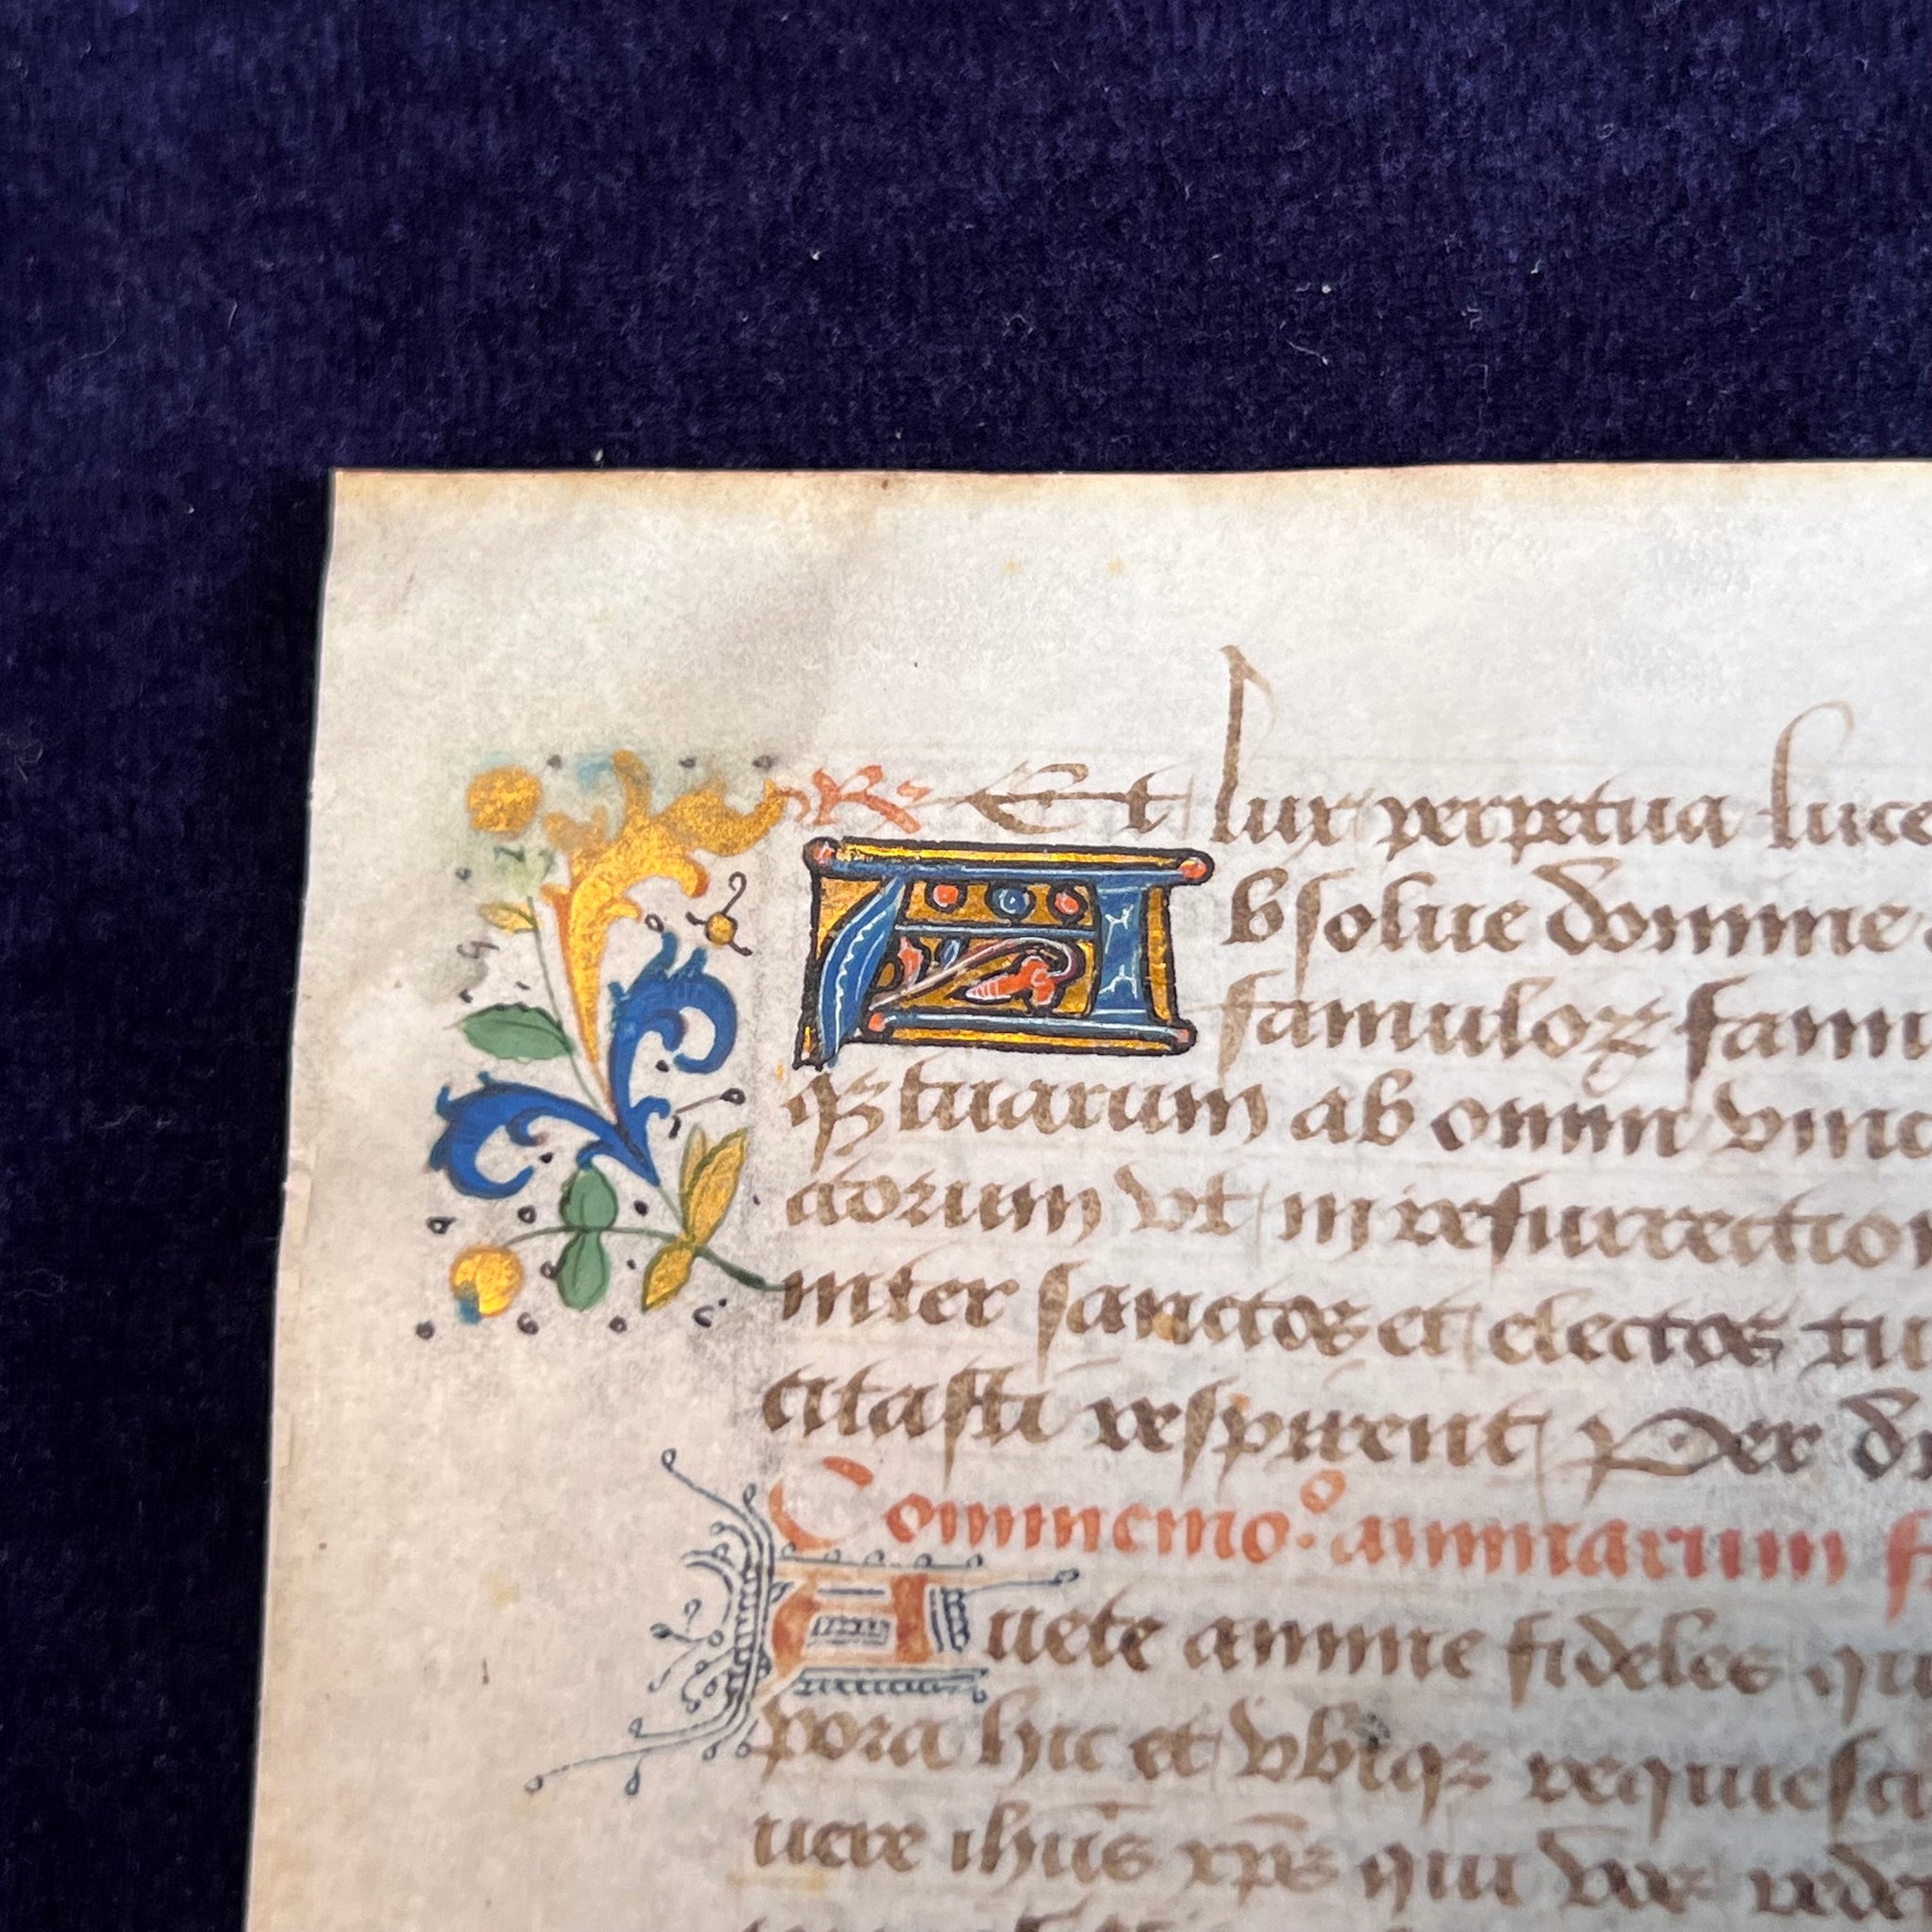 R Et lux perpetua luce
Absolue domine
famuloꝝ famu
qꝫ tuarum ab omni vinc
adorum vt in resurrection
inter sanctos et electos tu
citasti respirent Per d
Commemo.º animarum f
Auete anime fideles qu
pora hic et vbiqꝫ requiesc
uere ihūs xp̄s qui vos rede